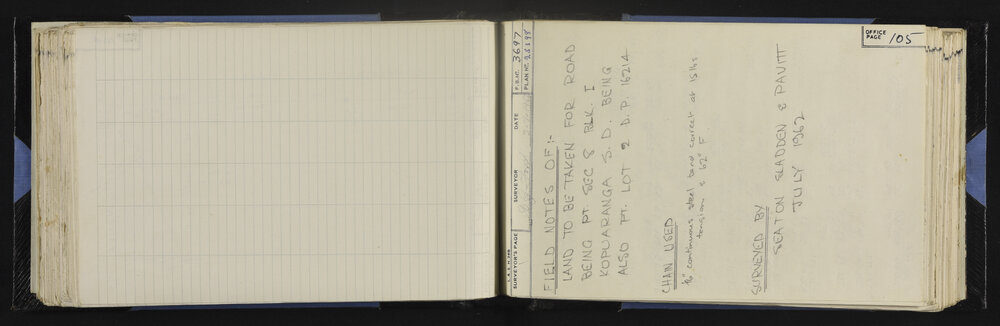 OFFICE
PAGE 105
L & S H.
SURVEYOR'S PAGE
SURVEYOR
DATE
F.B. NO. 3697
PLAN NO.
FIELD NOTES OF:-
LAND TO BE TAKEN FOR ROAD
BEING PT. SEC 8 BLK. I
KOPUARANGA S. D. BEING
ALSO PT. LOT 2 D.P. 16214
CHAIN USED
continuous steel band correct at 15 lbs
tension & 62° F
SURVEYED BY
SEATON SLADDEN & PAVITT
JULY 1962